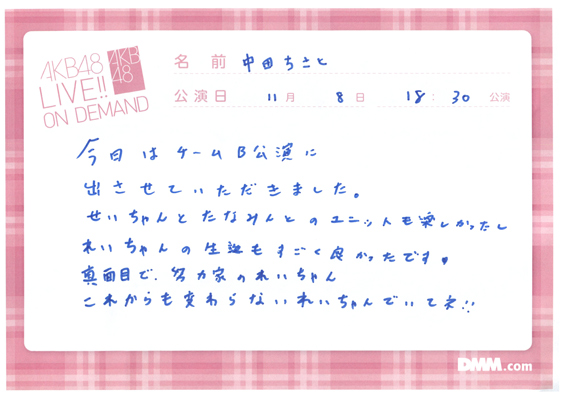 AKB48
LIVE!!
ON DEMAND
AKB
48
名前 中田ちさと
公演日 11月 8日 18:30 公演
今日はチームB公演に
出させていただきました。
せいちゃんとたなみんとのユニットも楽しかったし
れいちゃんの生誕もすごく良かったです。
真面目で、努力家のれいちゃん
これからも変わらないれいちゃんでいてネ!!
DMM.com